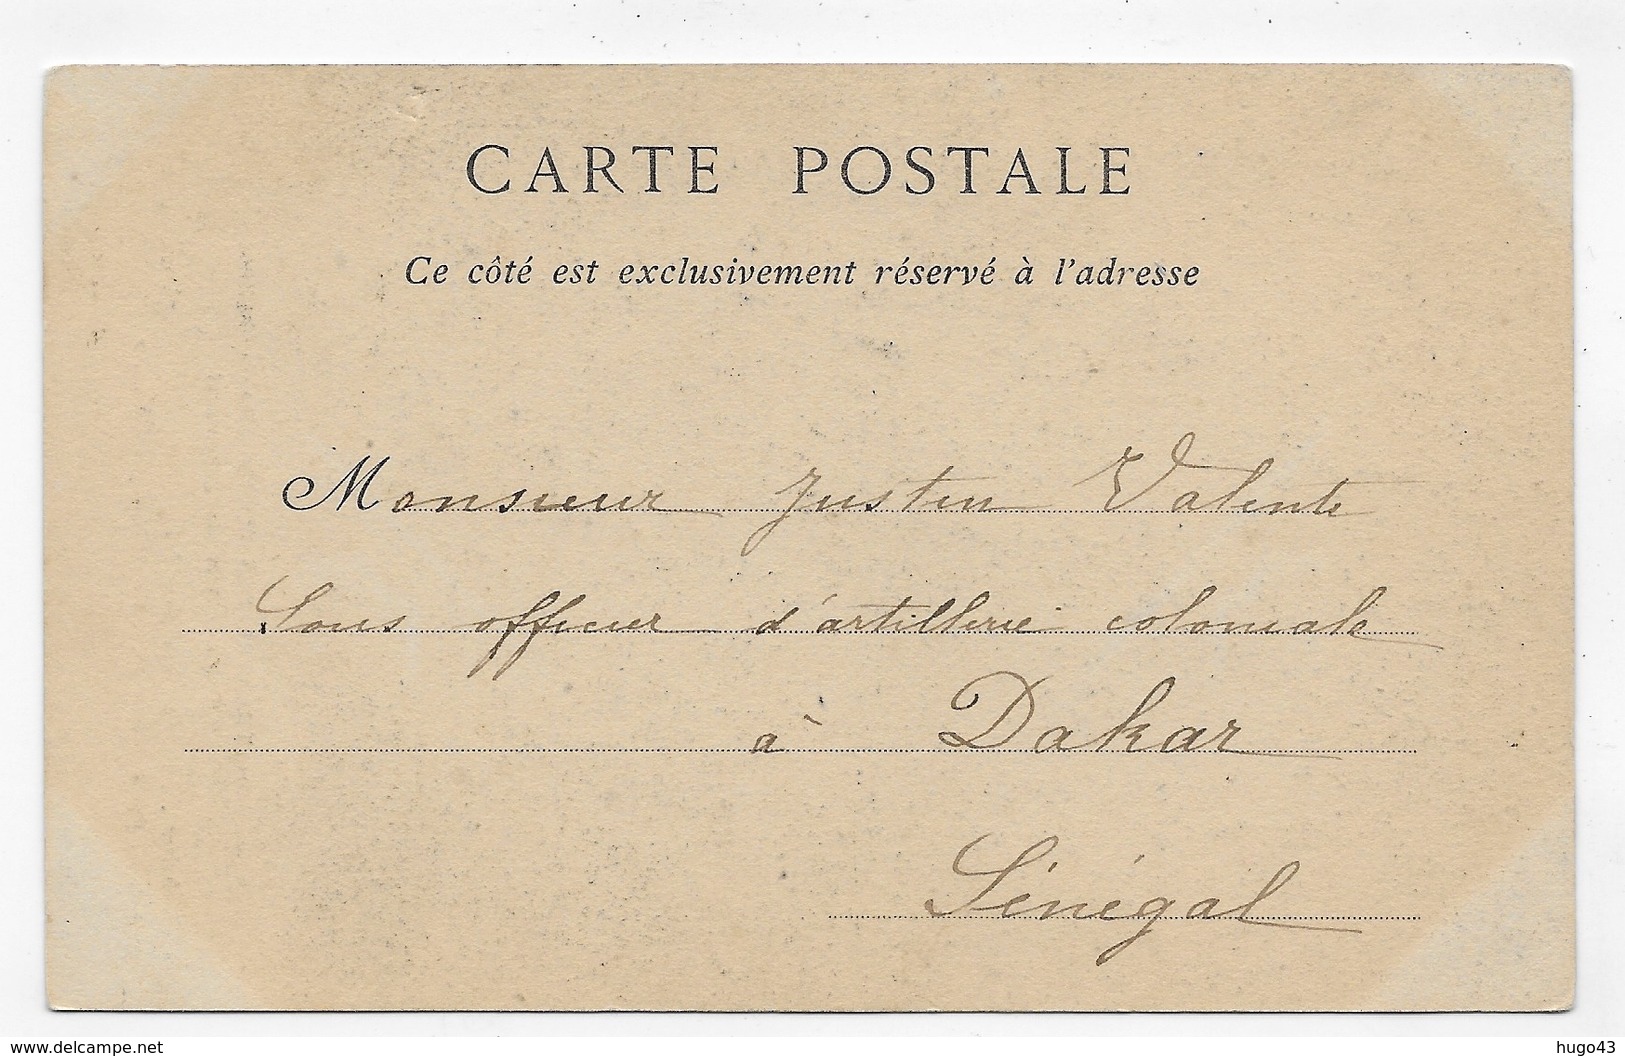 CARTE POSTALE
Ce côté est exclusivement réservé à l'adresse
Monsieur Justin Valente
Sous officier d'artillerie coloniale
à Dakar
Sénégal
www.delcampe.net
hugo43